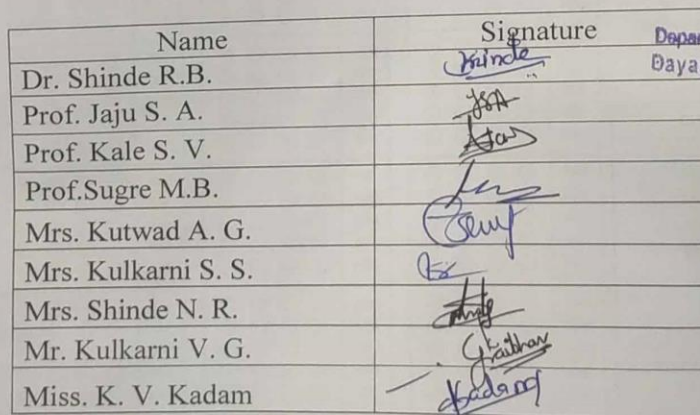 Name Signature
Depar
Dr. Shinde R.B. Shinde
Daya
Prof. Jaju S. A. JSA
Prof. Kale S. V.
Prof.Sugre M.B.
Mrs. Kutwad A. G.
Mrs. Kulkarni S. S.
Mrs. Shinde N. R.
Mr. Kulkarni V. G.
Miss. K. V. Kadam Kadam